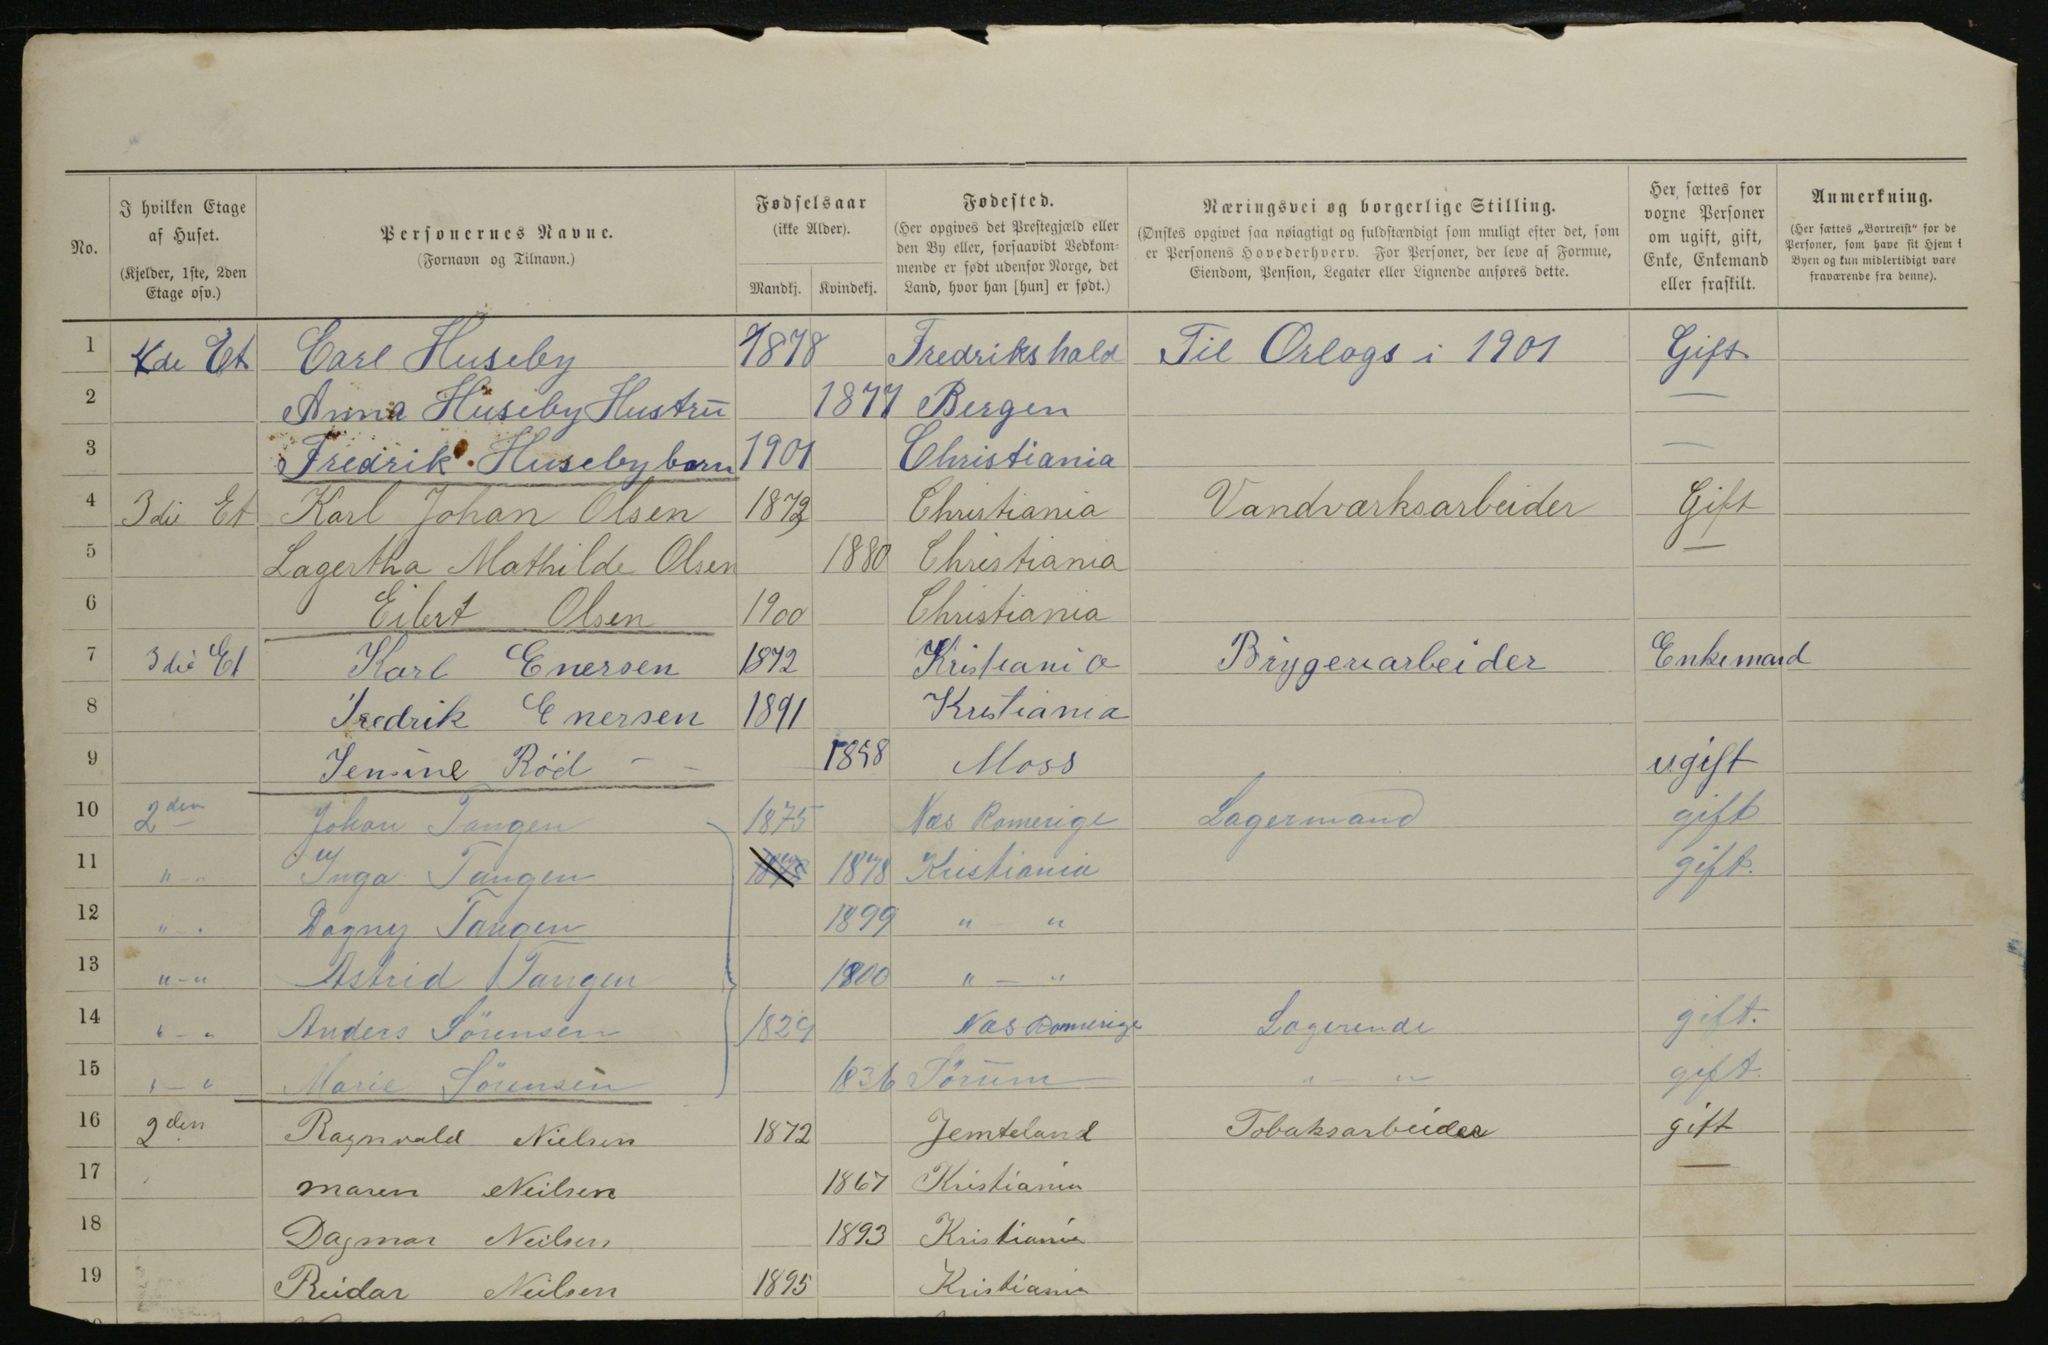 No.
I hvilken Etage af Huset.
(Kjelder, 1ste, 2den Etage osv.)
Personernes Navne.
(Fornavn og Tilnavn.)
Fødselsaar
(ikke Alder).
Mandkj. Kvindekj.
Fødested.
(Her opgives det Prestegjæld eller den By eller, forsaavidt Vedkommende er født udenfor Norge, det Land, hvor han [hun] er født.)
Næringsvei og borgerlige Stilling.
(Ønskes opgivet saa nøiagtigt og fuldstændigt som muligt efter det, som er Personens Hovederhverv. For Personer, der leve af Formue, Eiendom, Pension, Legater eller Lignende anføres dette.
Her sættes for voxne Personer om ugift, gift, Enke, Enkemand eller fraskilt.
Anmerkning.
(Her sættes „Bortreist" for de Personer, som have sit Hjem i Byen og kun midlertidigt vare fraværende fra denne).
1 de Et Carl Huseby 1878 Fredrikshald Til Orlogs i 1901 Gift
2 Anna Huseby Hustru 1877 Bergen —
3 Fredrik Huseby barn 1901 Christiania —
4 3die Et Karl Johan Olsen 1872 Christiania Vandværksarbeider Gift
5 Lagertha Mathilde Olsen 1880 Christiania —
6 Eilert Olsen 1900 Christiania
7 3die Et Karl Enersen 1872 Kristiania Bryggeriarbeider Enkemand
8 Fredrik Enersen 1891 Kristiania
9 Jensine Rød — — 1858 Moss ugift
10 2den Johan Tangen 1875 Næs Romerige Lagermand gift
11 "-" Inga Tangen 1878 Kristiania gift.
12 "-" Dagny Tangen 1899 " "
13 "-" Astrid Tangen 1900 " — "
14 "-" Anders Sörensen 1829 Næs Romerige Logerende gift.
15 "-" Marie Sörensen 1836 Sörum " — " gift.
16 2den Ragnvald Nielsen 1872 Jemteland Tobaksarbeider gift
17 maren Neilsen 1867 Kristiania —
18 Dagmar Neilsen 1893 Kristiania
19 Reidar Neilsen 1895 Kristiania